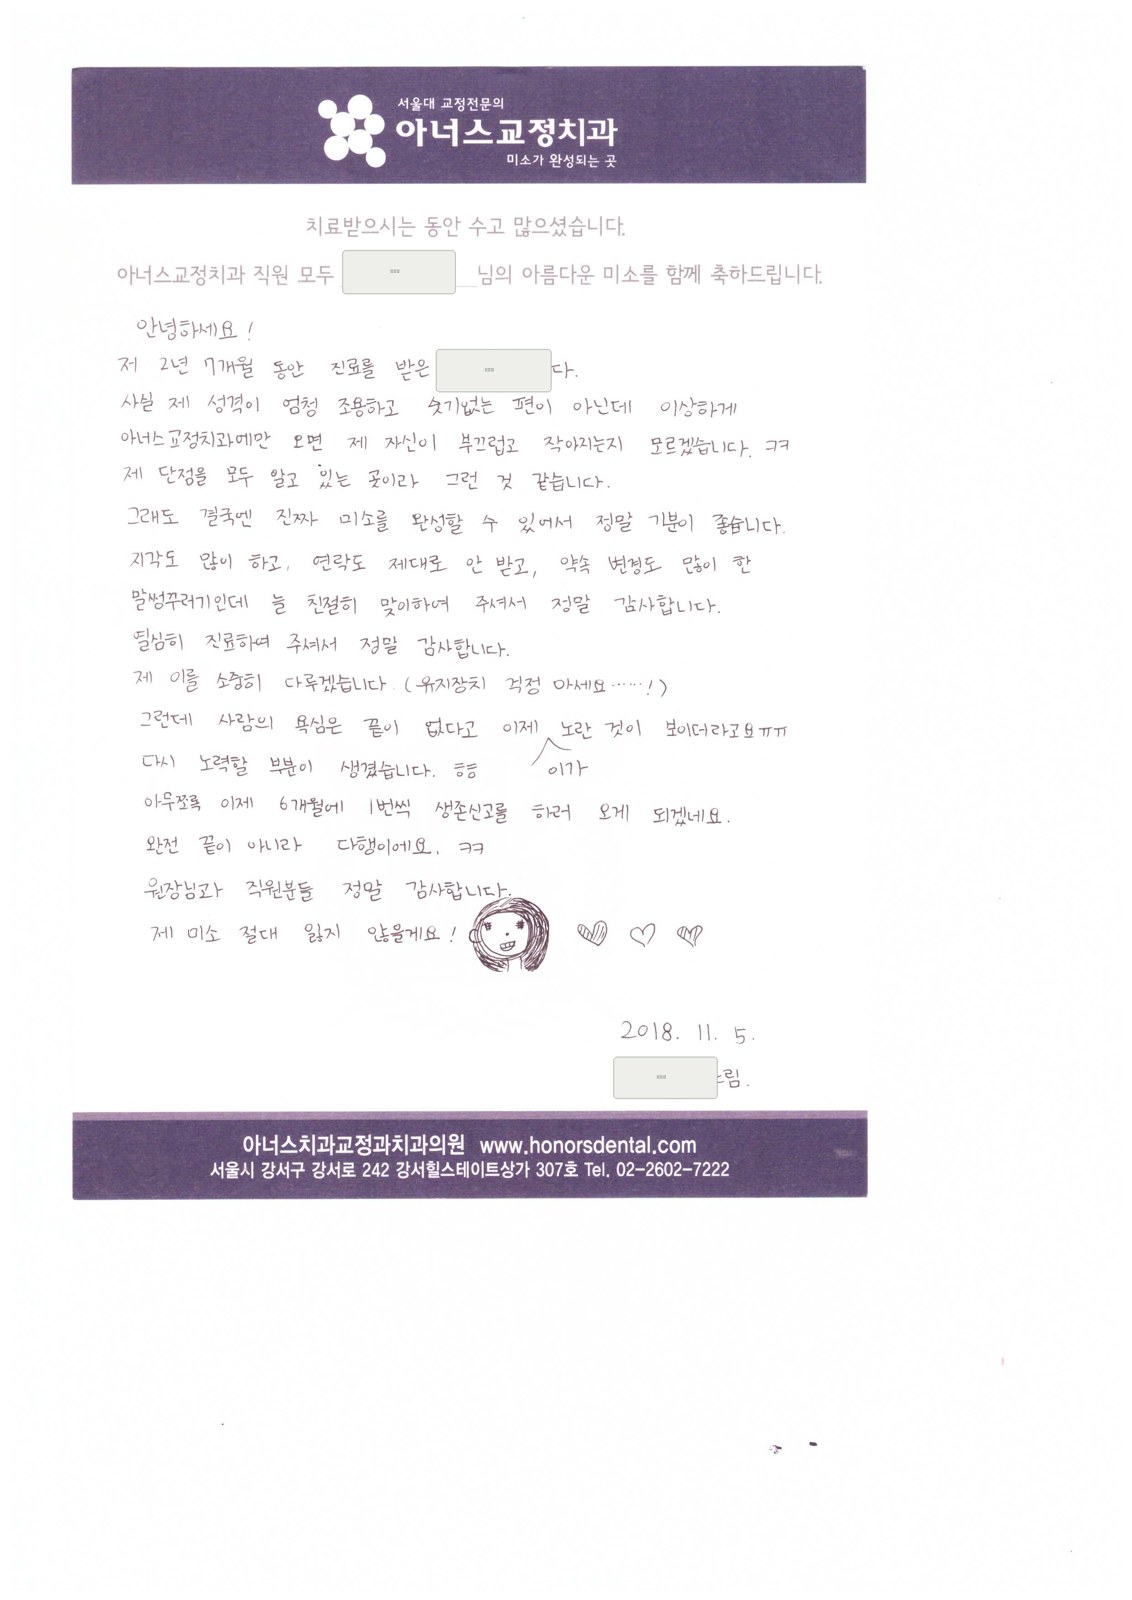 서울대 교정전문의
아너스교정치과
미소가 완성되는 곳
치료받으시는 동안 수고 많으셨습니다.
아너스교정치과 직원 모두 님의 아름다운 미소를 함께 축하드립니다.
안녕하세요!
저 2년 7개월 동안 진료를 받은 다.
사실 제 성격이 엄청 조용하고 숫기없는 편이 아닌데 이상하게
아너스교정치과에만 오면 제 자신이 부끄럽고 작아지는지 모르겠습니다. ㅋㅋ
제 단점을 모두 알고 있는 곳이라 그런 것 같습니다.
그래도 결국엔 진짜 미소를 완성할 수 있어서 정말 기분이 좋습니다.
지각도 많이 하고, 연락도 제대로 안 받고, 약속 변경도 많이 한
말썽꾸러기인데 늘 친절히 맞이하여 주셔서 정말 감사합니다.
열심히 진료하여 주셔서 정말 감사합니다.
제 이를 소중히 다루겠습니다. (유지장치 걱정 마세요......!)
그런데 사람의 욕심은 끝이 없다고 이제 노란 것이 보이더라고요ㅠㅠ
다시 노력할 부분이 생겼습니다. ㅎㅎ 이가
아무쪼록 이제 6개월에 1번씩 생존신고를 하러 오게 되겠네요.
완전 끝이 아니라 다행이에요. ㅋㅋ
원장님과 직원분들 정말 감사합니다.
제 미소 절대 잃지 않을게요!
2018. 11. 5.
드림.
아너스치과교정과치과의원 www.honorsdental.com
서울시 강서구 강서로 242 강서힐스테이트상가 307호 Tel. 02-2602-7222